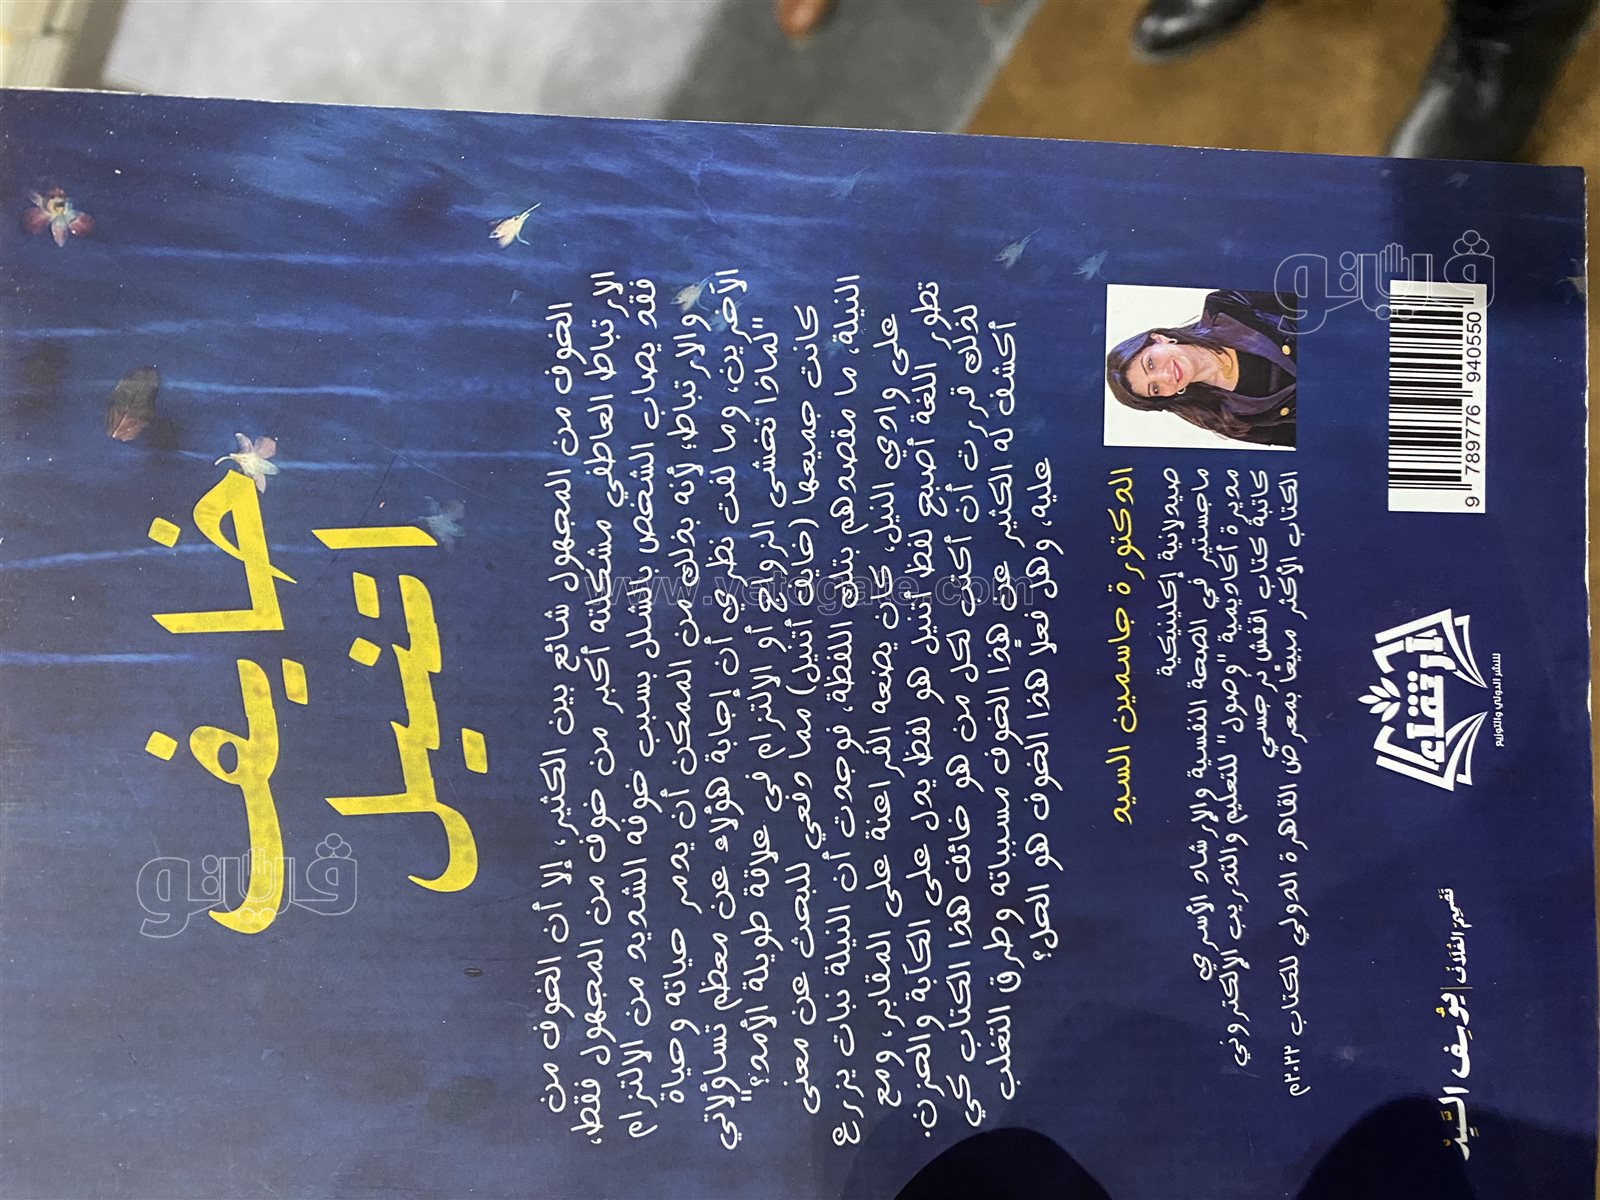 خايف
اتنيل
الخوف من المجهول شائع بين الكثير، إلا أن الخوف من
الارتباط العاطفي مشكلته أكبر من خوف من المجهول فقط،
فقد يصاب الشخص بالشلل بسبب خوفه الشديد من الالتزام
والارتباط؛ لأنه بذلك من الممكن أن يدمر حياته وحياة
الآخرين، وما لفت نظري أن إجابة هؤلاء عن معظم تساؤلاتي
"لماذا تخشى الزواج أو الالتزام في علاقة طويلة الأمد؟"
كانت جميعها (خايف أتنيل) مما دفعني للبحث عن معنى
النيلة، ما مقصدهم بتلك اللفظة، فوجدت أن النيلة نبات يزرع
على وادي النيل، كان يضعه الفراعنة على المقابر، ومع
تطور اللغة أصبح لفظ أتنيل هو لفظ يدل على الكآبة والحزن.
لذلك قررت أن أكتب لكل من هو خائف هذا الكتاب كي
أكشف له الكثير عن هذا الخوف مسبباته وطرق التغلب
عليه، وهل فعلا هذا الخوف هو الحل؟
الدكتورة جاسمين السيد
صيدلانية إكلينيكية
ماجستير في الصحة النفسية والإرشاد الأسري
مديرة أكاديمية "وصول" للتعليم والتدريب الإلكتروني
كاتبة كتاب اقفش نرجسي
الكتاب الأكثر مبيعًا بمعرض القاهرة الدولي للكتاب ٢٠٢٢م
9 789776 940550
ارتقاء
للنشر الدولي والتوزيع
تصميم الغلاف | يوسف السيد
فيتو
فيتو
www.vetogate.com